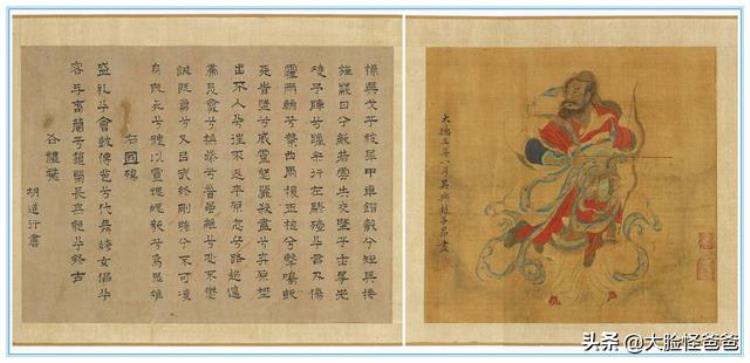 操吳戈兮被犀甲車錯轂兮短兵接
旌蔽日兮敵若雲矢交墜兮士爭先
凌予陣兮躐予行左驂殪兮右刃傷
霾兩輪兮縶四馬援玉枹兮擊鳴鼓
墜兮威靈怒嚴殺盡兮棄原野
出不入兮往不返平原忽兮路超遠
帶長劍兮挾秦弓首雖離兮心不懲
誠既勇兮又以武終剛強兮不可凌
身既死兮神以靈魂魄毅兮為鬼雄
右國殤
盛禮兮會鼓傳芭兮代舞姱女倡兮
容與春蘭兮秋菊長無絕兮終古
右禮魂
胡道行書
大德三年八月吳興趙子昂畫
头条 @大脸怪爸爸